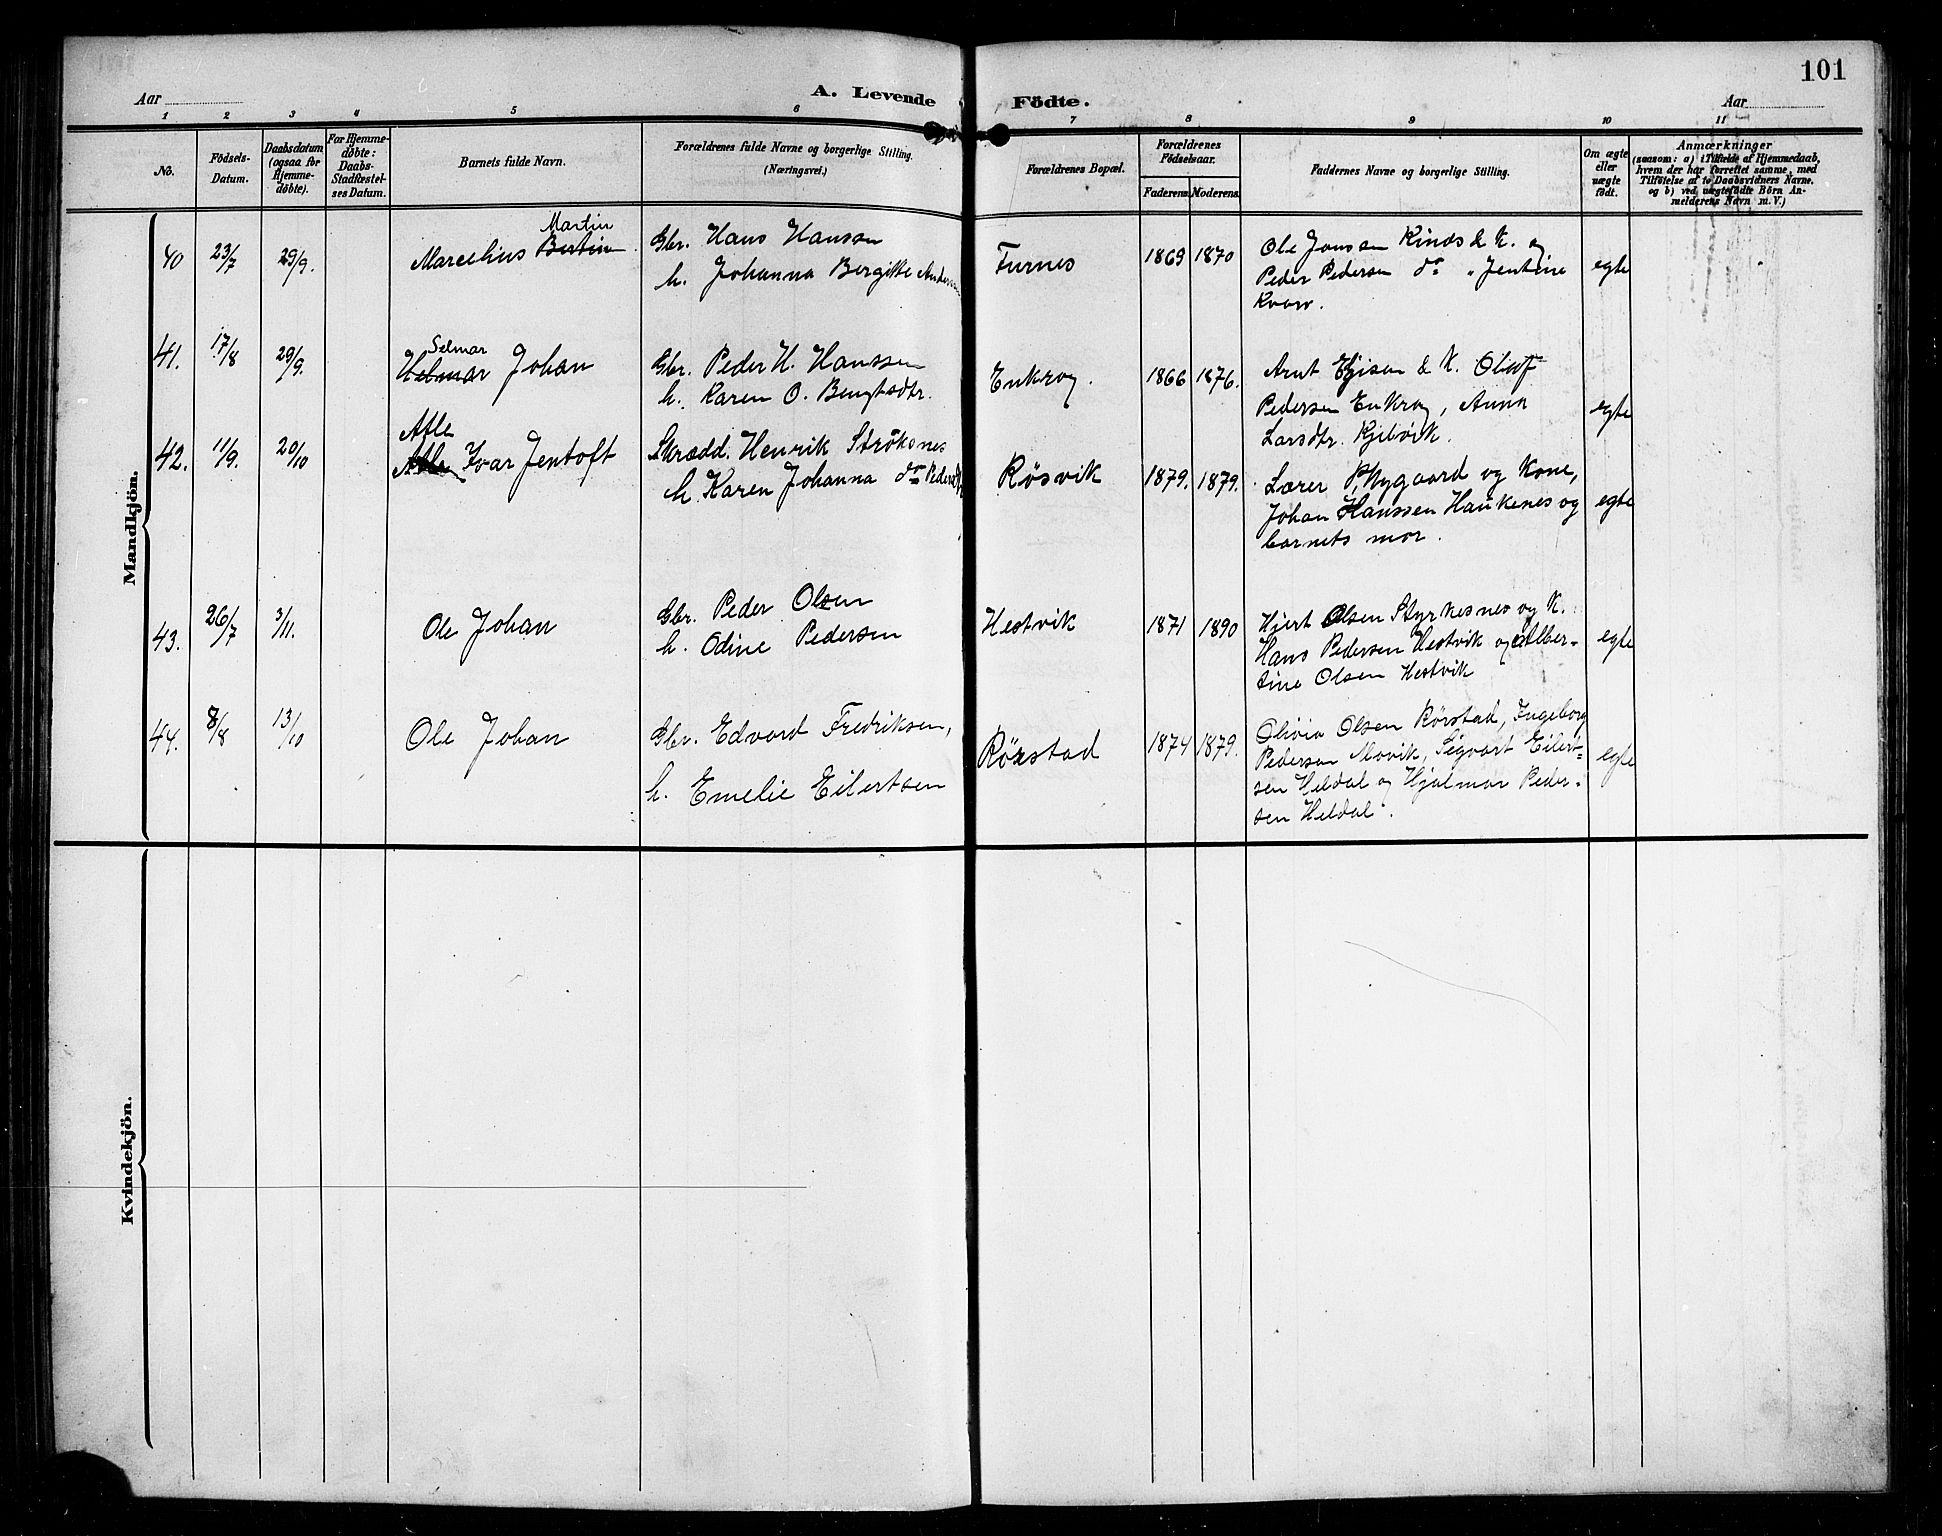 101
Aar
A. Levende Födte.
Aar
1 2 3 4 5 6 7 8 9 10 11
No.
Födsels-
Datum.
Daabsdatum
(ogsaa for
Hjemme-
döbte).
For Hjemme-
döbte:
Daabs-
Stadfæstel-
ses Datum.
Barnets fulde Navn.
Forældrenes fulde Navne og borgerlige Stilling.
(Næringsvei.)
Forældrenes Bopæl.
Forældrenes
Födselsaar.
Faderens
Moderens.
Faddernes Navne og borgerlige Stilling.
Om ægte
eller
uægte
födt.
Anmærkninger
(saasom: a) i Tilfælde af Hjemmedaab,
hvem der har forrettet samme, med
Tilföielse af to Daabsvidners Navne,
og b) ved uægtefödte Börn An-
melderens Navn m. V.)
Mandkjön.
40
23/7
29/9.
Martin
Marcelius Bertin
Gbr. Hans Hanssen
h. Johanna Bergitte Andersen
Furnes
1869
1870
Ole Jonssen Rinds & K. og
Peder Pedersen do " Jentine
Kvarv.
egte
41.
17/8
29/9.
Selmar
Helmar Johan
Gbr. Peder H. Hanssen
h. Karen O. Bengtsdtr.
Enkrog.
1866
1876.
Arnt Ejisen & K. Oluf
Pedersen Enkrog, Anna
Larsdtr. Kjelvik.
egte
42.
11/9.
20/10
Atle
Ivar Jentoft
Skrædd. Henrik Ströksnes
h. Karen Johanna do Peders
Rösvik
1879.
1879.
Lærer P. Nygaard og Kone,
Johan Hanssen Haukenes og
barnets mor.
egte
43.
26/7
3/11.
Ole Johan
Gbr. Peder Olsen
h. Odine Pedersen
Hestvik
1871
1890
Hjert Olsen Styrkesnes og K.
Hans Pedersen Hestvik og Alber-
tine Olsen Hestvik
egte
44.
8/8
13/10
Ole Johan
Gbr. Edvard Fredriksen,
h. Emelie Eilertsen
Rörstad
1874
1879.
Olivia Olsen Rörstad, Ingeborg
Pedersen Movik, Sigvart Eilert-
sen Heldal og Hjalmar Peder-
sen Heldal.
egte
Kvindekjön.